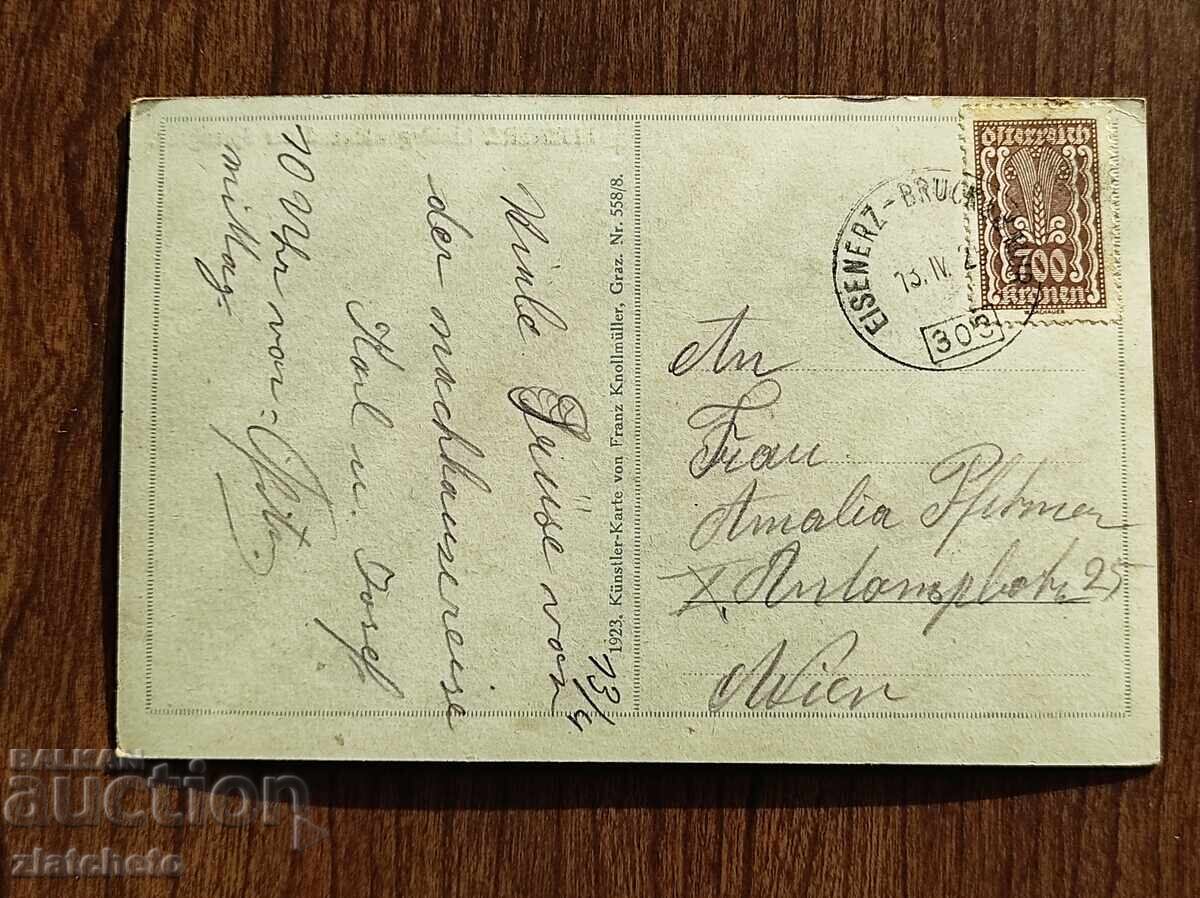 13/4
Viele Grüse von
der nachhausereise
Karl u. Josef
10 Uhr vor=
mittag
1923. Künstler-Karte von Franz Knollmüller, Graz. Nr. 558/8.
Österreich
Kronen
EISENERZ-BRUCK
13. IV. 2
305
An
Frau
Amalia
X. 25
Wien
BALKAN
auction
zlatcheto